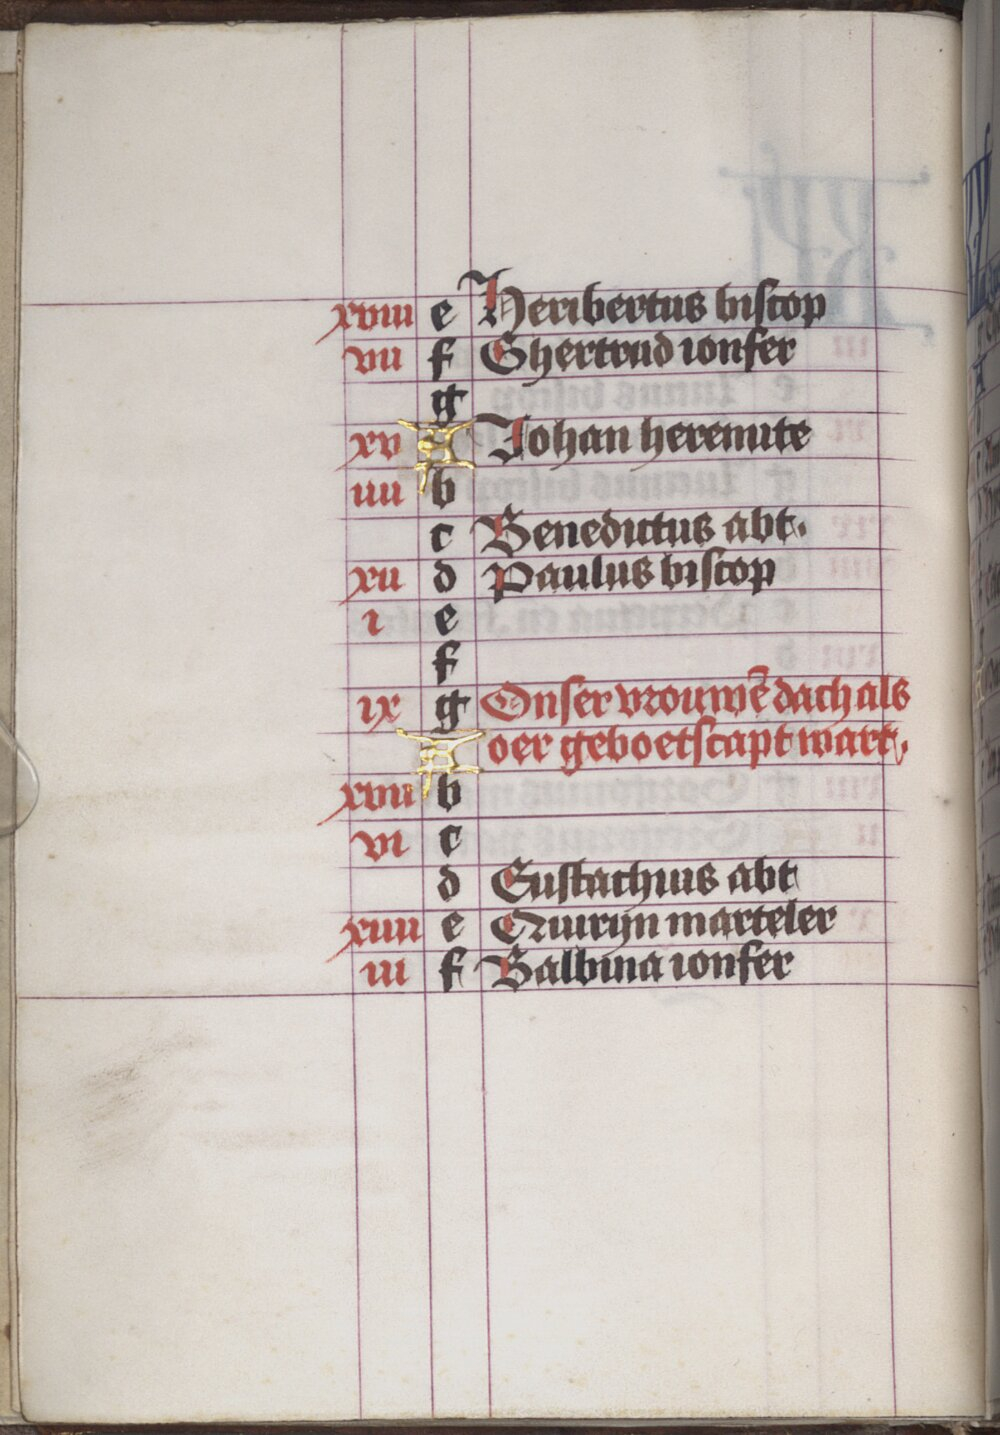 xviii e Heribertus biscop
vii f Ghertrud ionfer
g
xv A Johan heremite
iiii b
c Benedictus abt.
xii d Paulus biscop
i e
f
ix g Onser vrouwē dach als
A oer geboetscapt wart.
xvii b
vi c
d Eustachius abt
xiiii e Quiryn marteler
iii f Balbina ionfer